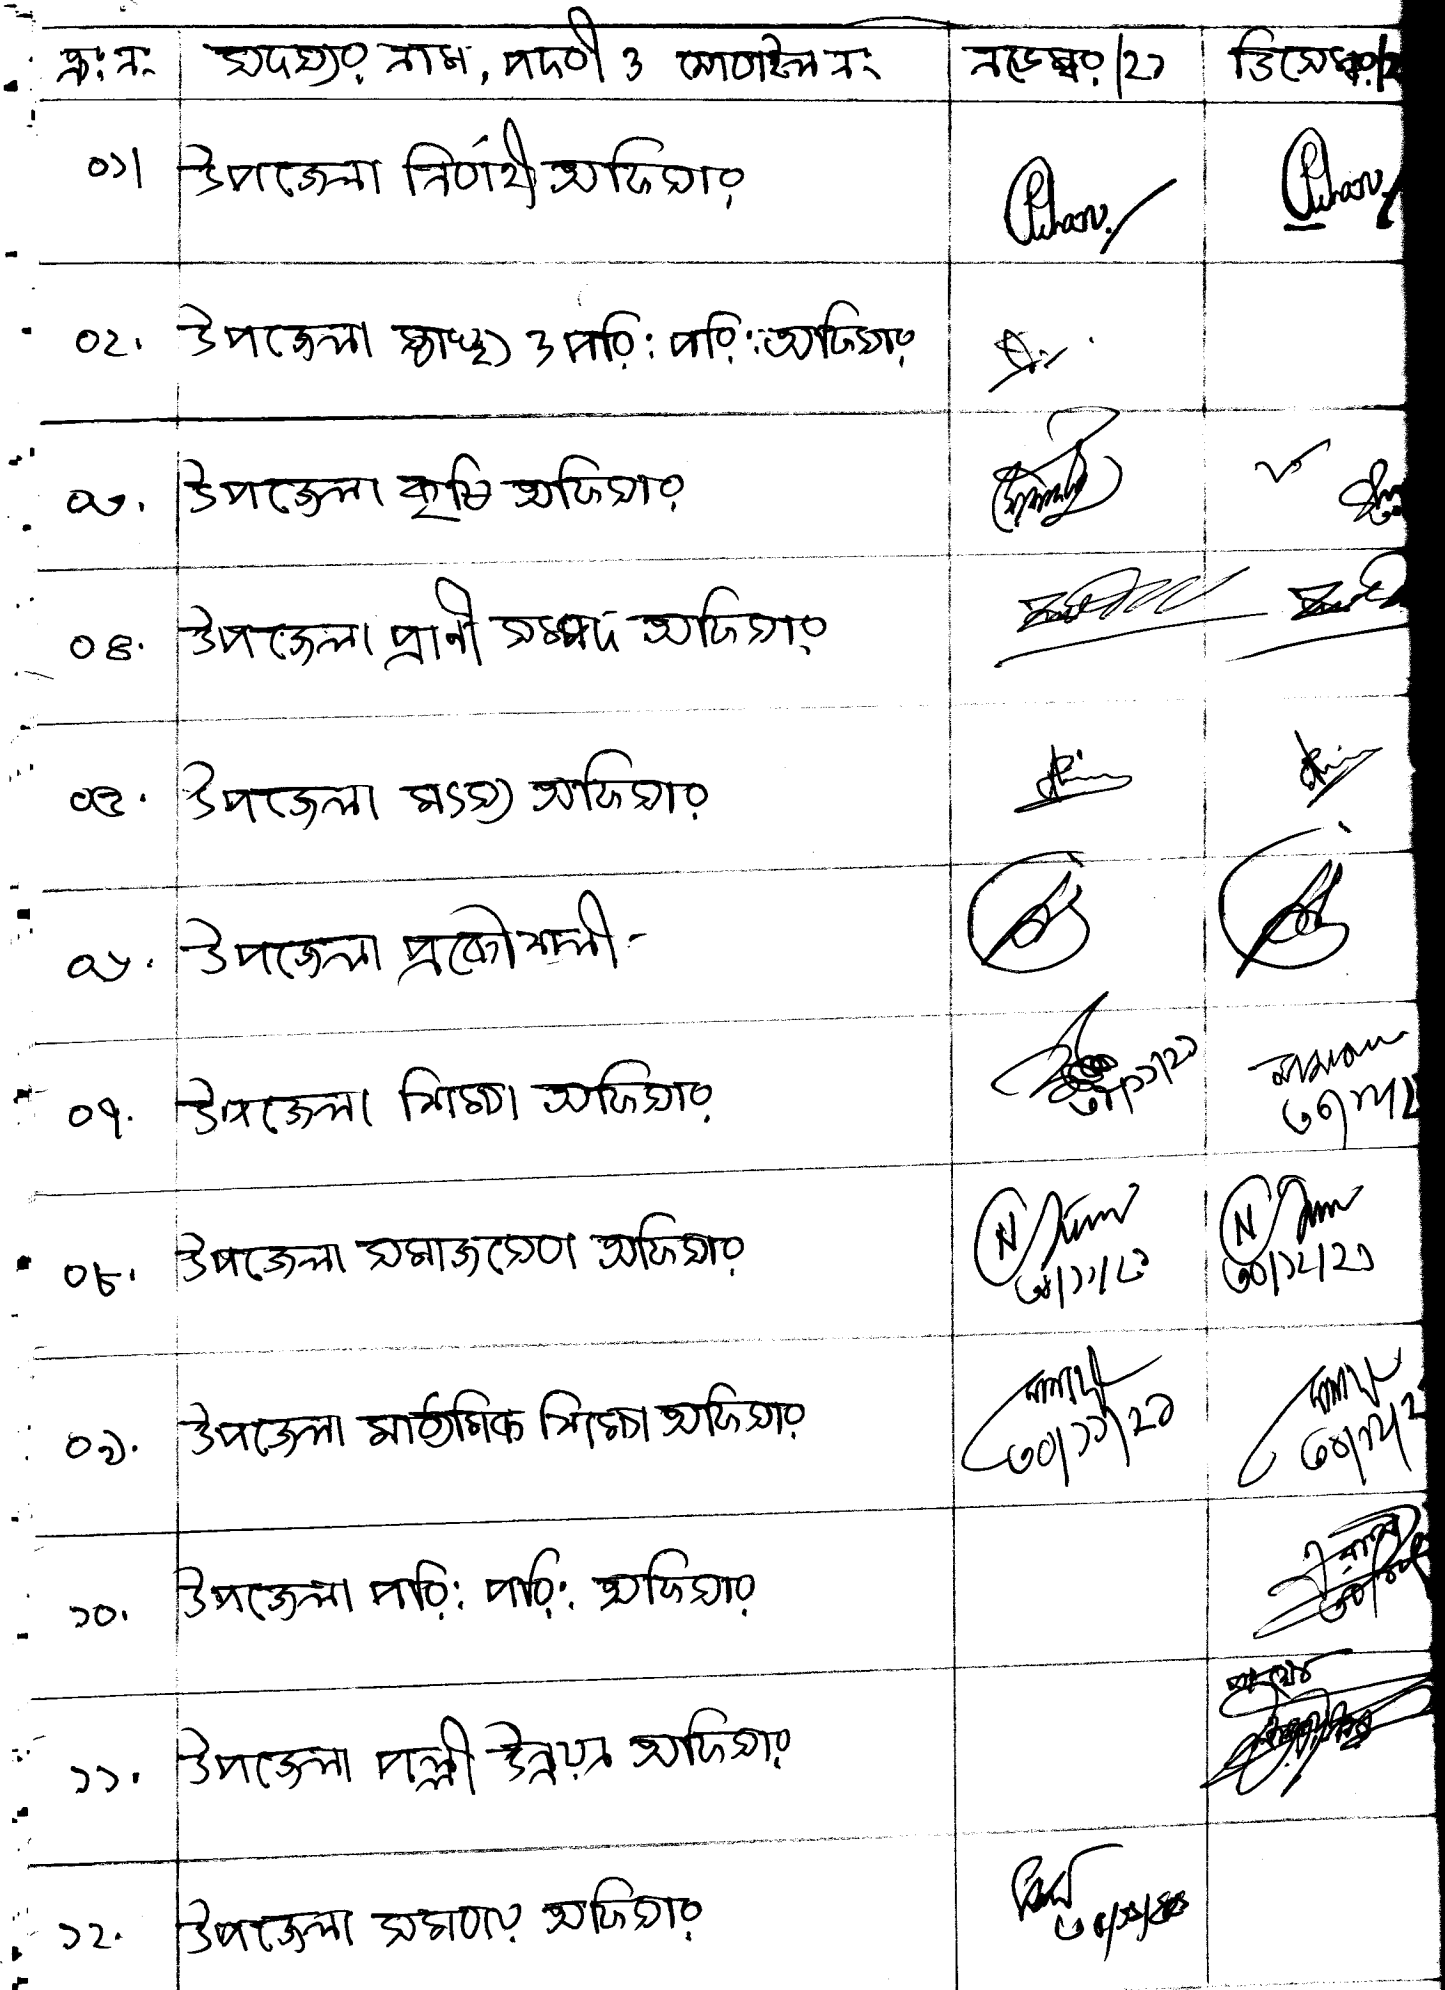 ক্রঃ নং সদস্যর নাম, পদবী ও মোবাইল নং নভেম্বর/২১ ডিসেম্বর/২
০১। উপজেলা নির্বাহী অফিসার
০২. উপজেলা স্বাস্থ্য ও পরি: পরি: অফিসার
০৩. উপজেলা কৃষি অফিসার
০৪. উপজেলা প্রানী সম্পদ অফিসার
০৫. উপজেলা মৎস্য অফিসার
০৬. উপজেলা প্রকৌশলী-
০৭. উপজেলা শিক্ষা অফিসার
০৮. উপজেলা সমাজসেবা অফিসার ৩০/১২/২১
০৯. উপজেলা মাধ্যমিক শিক্ষা অফিসার ৩০/১১/২১
১০. উপজেলা পরি: পরি: অফিসার
১১. উপজেলা পল্লী উন্নয়ন অফিসার
১২. উপজেলা সমবায় অফিসার